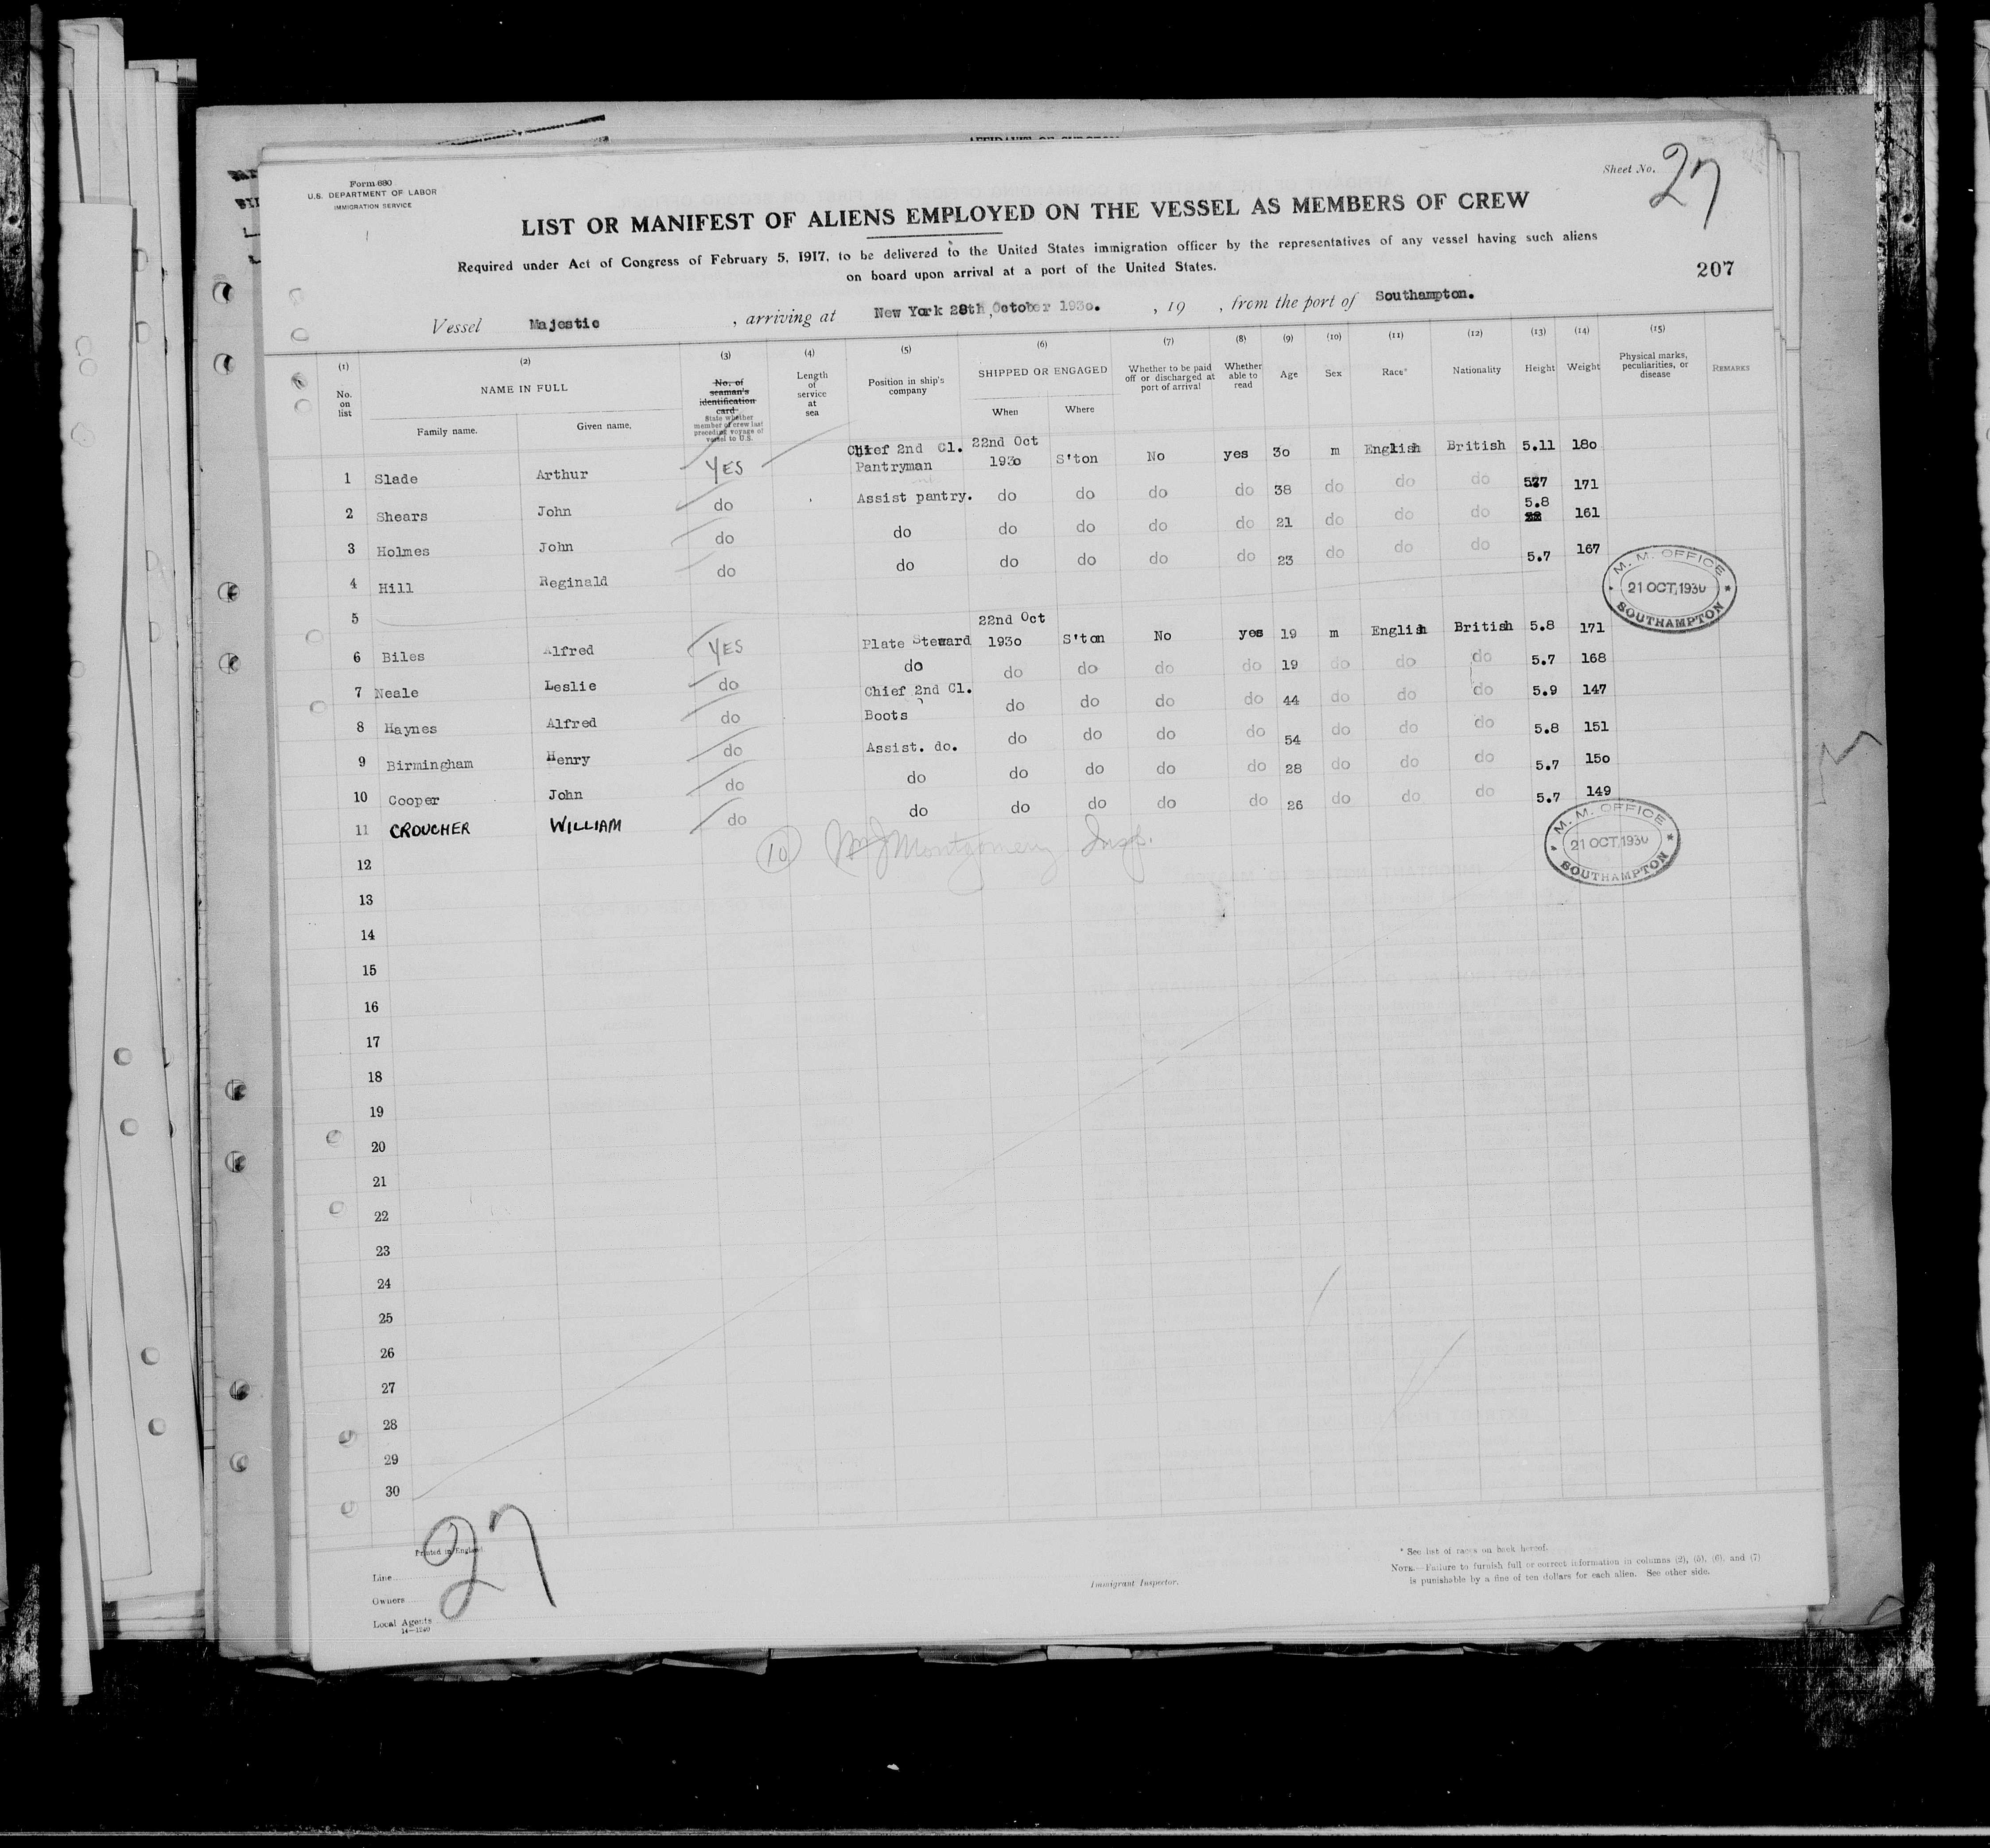 AFFIDAVIT OF SURGEON
Form 680
U.S. DEPARTMENT OF LABOR
IMMIGRATION SERVICE
Sheet No. 27
LIST OR MANIFEST OF ALIENS EMPLOYED ON THE VESSEL AS MEMBERS OF CREW
Required under Act of Congress of February 5, 1917, to be delivered to the United States immigration officer by the representatives of any vessel having such aliens
on board upon arrival at a port of the United States.
207
Vessel Majestic , arriving at New York 28th, October 1930. , 19 , from the port of Southampton.
(1) (2) (3) (4) (5) (6) (7) (8) (9) (10) (11) (12) (13) (14) (15)
No. on list
NAME IN FULL
Family name. Given name.
No. of seaman's identification card
State whether member of crew last preceding voyage of vessel to U.S.
Length of service at sea
Position in ship's company
SHIPPED OR ENGAGED
When Where
Whether to be paid off or discharged at port of arrival
Whether able to read
Age
Sex
Race*
Nationality
Height
Weight
Physical marks, peculiarities, or disease
REMARKS
1 Slade Arthur YES Chief 2nd Cl. Pantryman 22nd Oct 1930 S'ton No yes 30 m English British 5.11 180
2 Shears John do Assist pantry. do do do do 38 do do do 5.7 171
3 Holmes John do do do do do do 21 do do do 5.8 161
4 Hill Reginald do do do do do do 23 do do do 5.7 167
5
6 Biles Alfred YES Plate Steward 22nd Oct 1930 S'ton No yes 19 m English British 5.8 171
7 Neale Leslie do do do do do do 19 do do do 5.7 168
8 Haynes Alfred do Chief 2nd Cl. Boots do do do do 44 do do do 5.9 147
9 Birmingham Henry do Assist. do. do do do do 54 do do do 5.8 151
10 Cooper John do do do do do do 28 do do do 5.7 150
11 CROUCHER WILLIAM do do do do do do 26 do do do 5.7 149
M. M. OFFICE
21 OCT 1930
SOUTHAMPTON
M. M. OFFICE
21 OCT 1930
SOUTHAMPTON
12
(10) Montgomery Insp.
13
14
15
16
17
18
19
20
21
22
23
24
25
26
27
28
29
30
27
Printed in England.
Line
Owners
Local Agents
14—1240
Immigrant Inspector.
* See list of races on back hereof.
NOTE.—Failure to furnish full or correct information in columns (2), (5), (6), and (7)
is punishable by a fine of ten dollars for each alien. See other side.